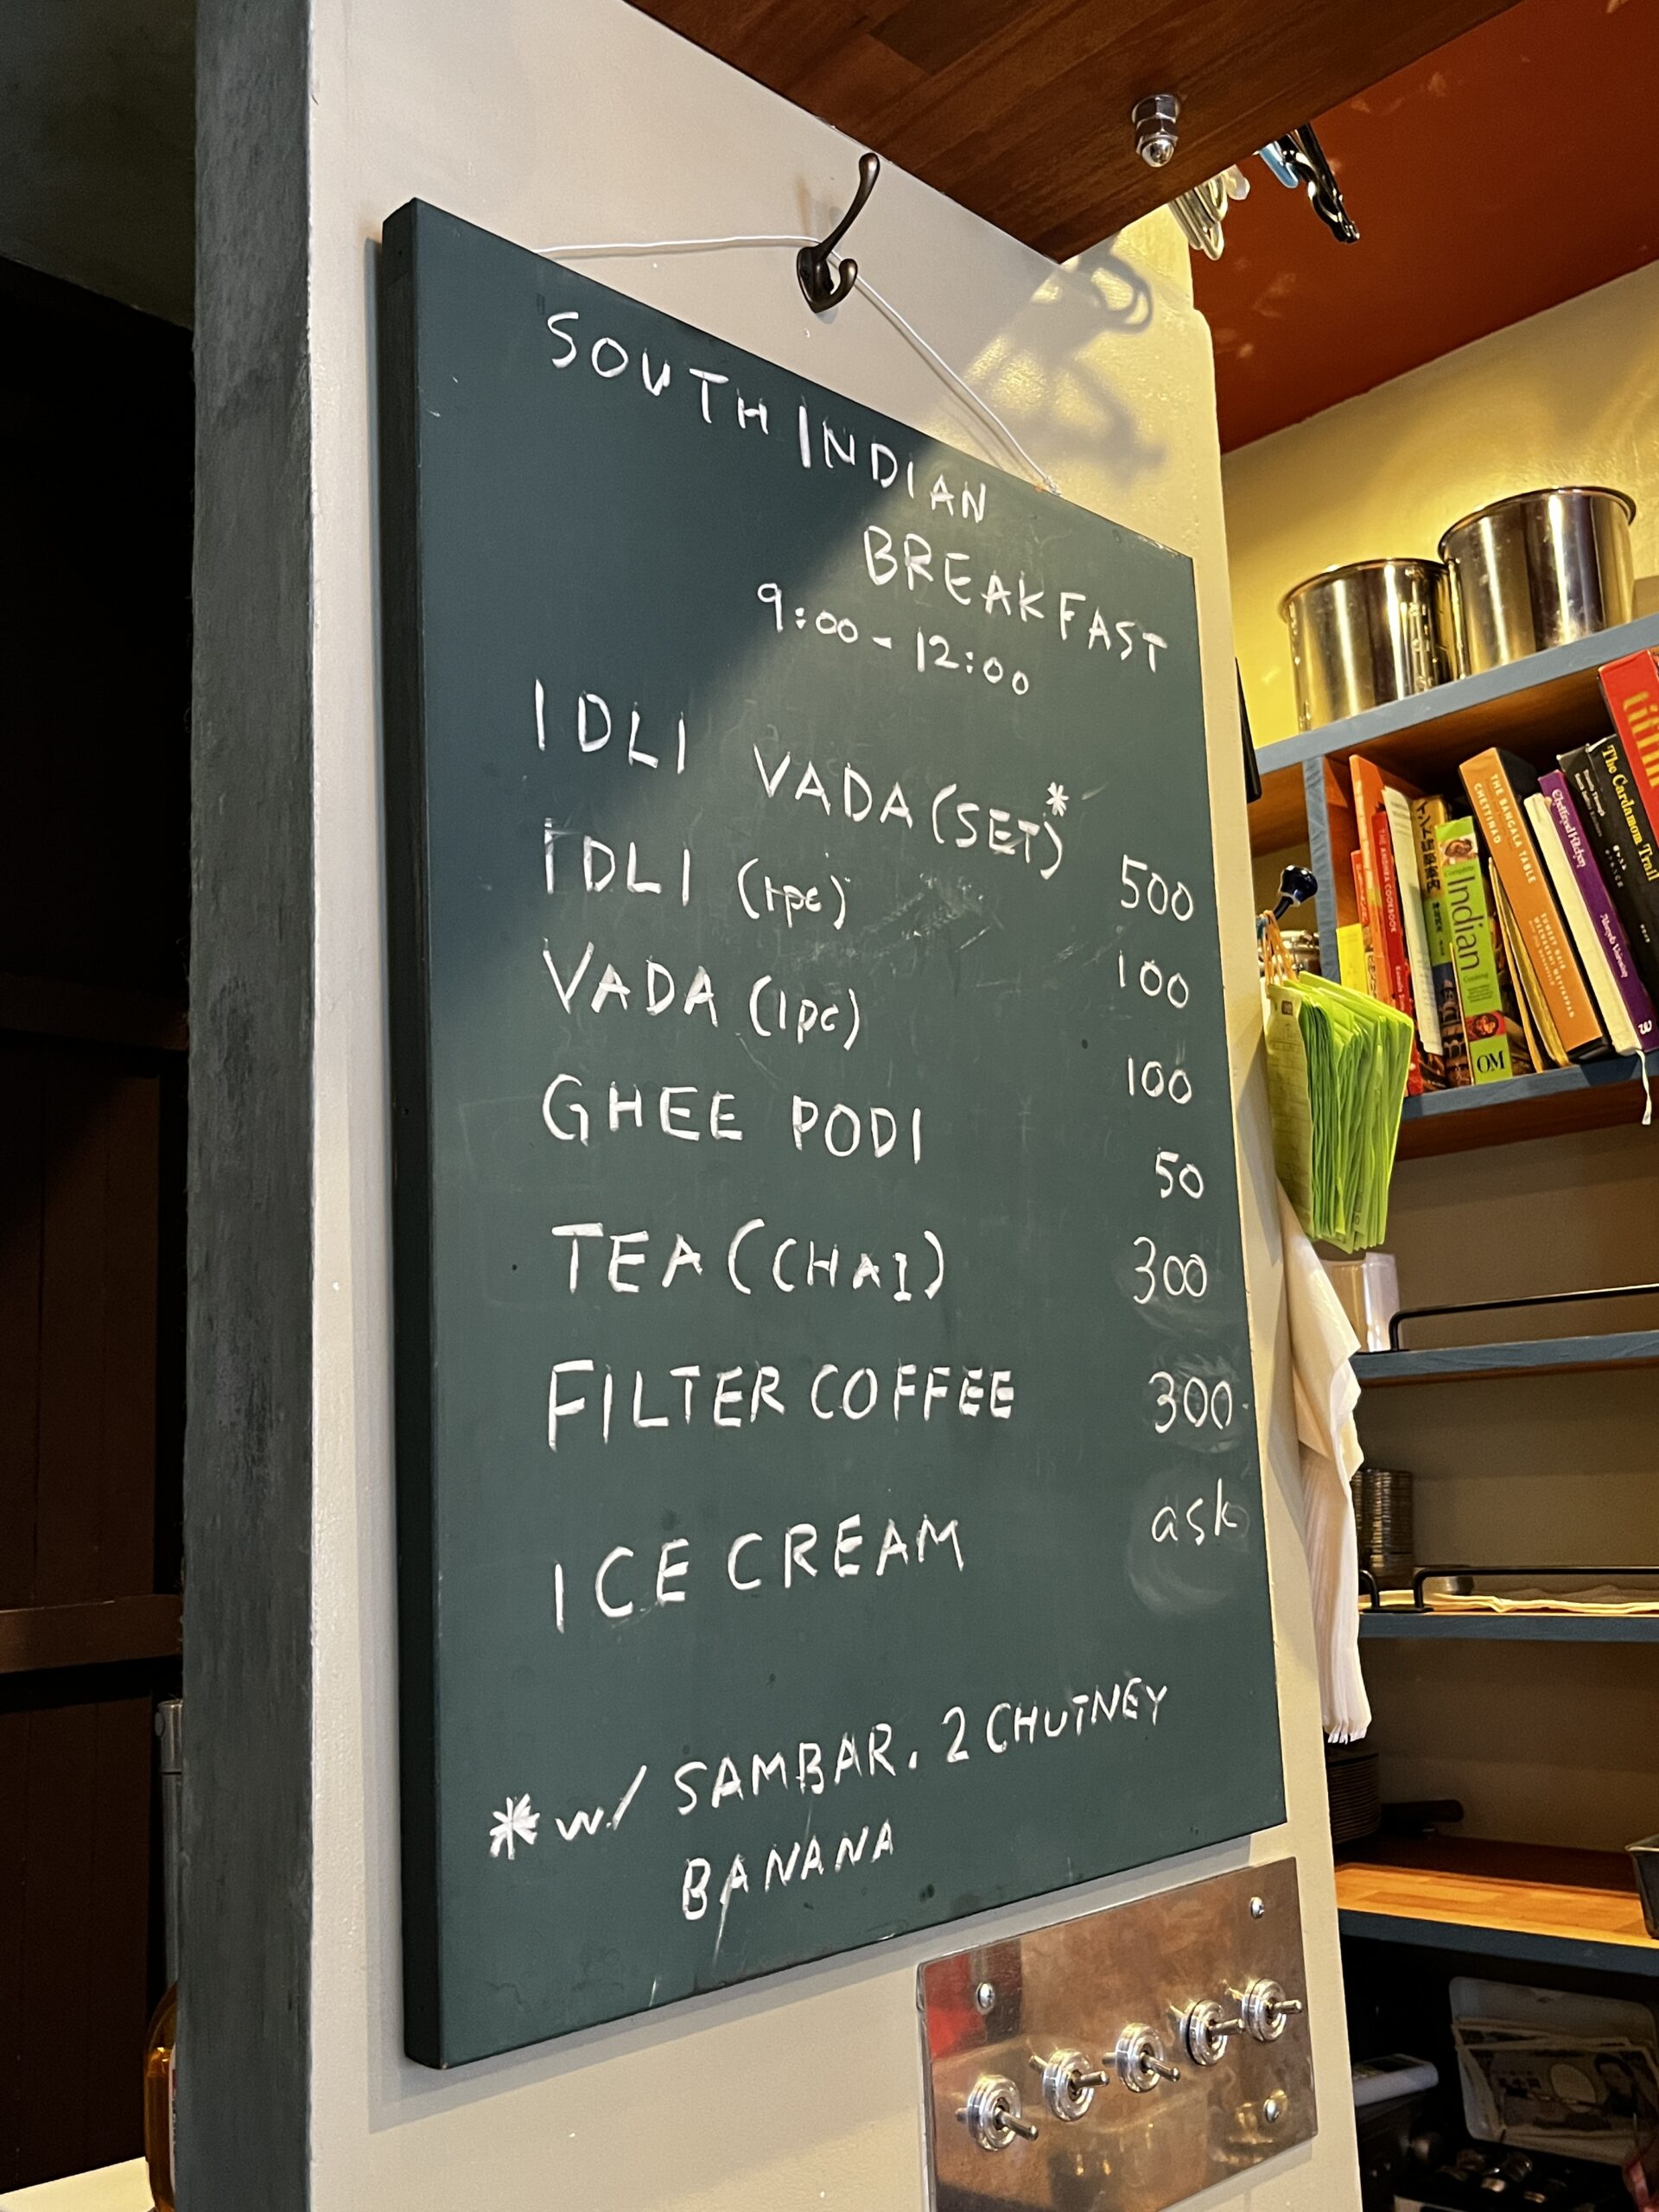 SOUTH INDIAN
BREAKFAST
9:00 - 12:00
IDLI VADA (SET)* 500
IDLI (1pc) 100
VADA (1pc) 100
GHEE PODI 50
TEA (CHAI) 300
FILTER COFFEE 300
ICE CREAM ask
* w/ SAMBAR. 2 CHUTNEY
BANANA
THE ANDHRA COOKBOOK
Indian
OM
THE BANGALA TABLE
CHETTINAD
Chettinad Kitchen
The Cardamom Trail
tiffin